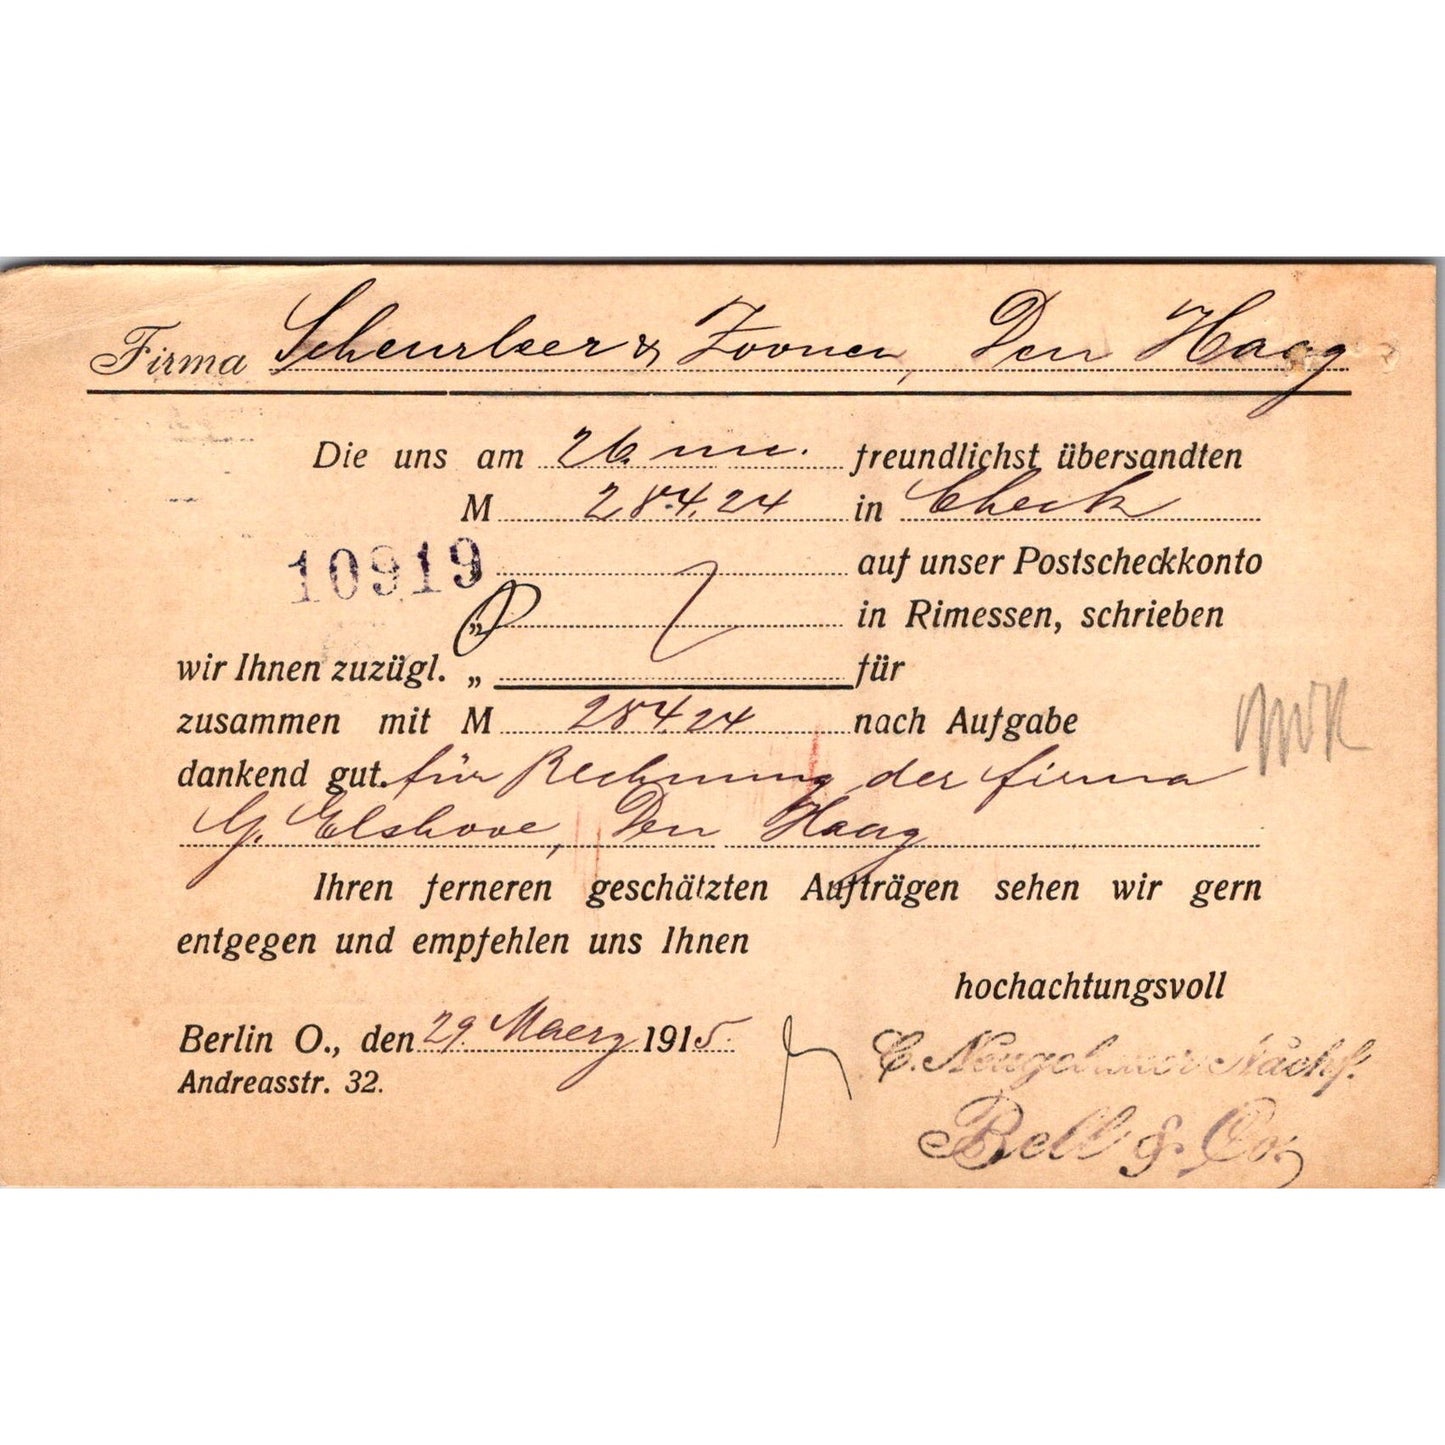 Firma Scheurleer & Zoonen, Den Haag
Die uns am 26. m. freundlichst übersandten
M 284.24 in Check
10919 auf unser Postscheckkonto
„ in Rimessen, schrieben
wir Ihnen zuzügl. „ für
zusammen mit M 284.24 nach Aufgabe
dankend gut. für Rechnung der firma
G. Elshove, Den Haag
Ihren ferneren geschätzten Aufträgen sehen wir gern
entgegen und empfehlen uns Ihnen
hochachtungsvoll
Berlin O., den 29. Maerz 1915.
Andreasstr. 32.
C. Neugebauer Nachf.
Bell & Co.